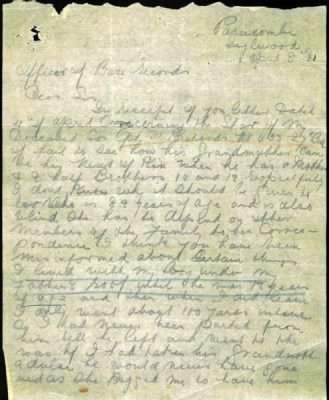 Paracombe
Inglewood
April 8 21
Officer of Base Records
Dear Sir
In receipt of you letter Dated
4th of April Concerning the Star of My
Deceased Son
I fail to see how his Grandmother Can
be his Next of Kin when he has a Mother
& 2 half Brothers 16 and 18 respectfully
I dont know why it Should be given to
who is 89 years of age and is also
blind She has to depend on other
Members of the Family to her Corres-
pondence I think you have been
misinformed about Certain things
I lived with my boy under my
Fathers roof until he was 19 years
of age and then when I did leave
I only went about 100 yards where
I had never been parted from
him till he left and went to the
war if I had taken his Grandmoth
advise he would never have gone
as She begged me to have him